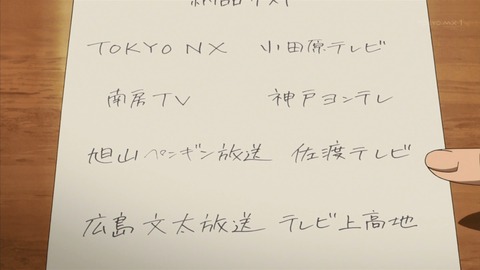 納品リスト
TOKYO NX 小田原テレビ
南房TV 神戸ヨンテレ
旭山ペンギン放送 佐渡テレビ
広島文太放送 テレビ上高地